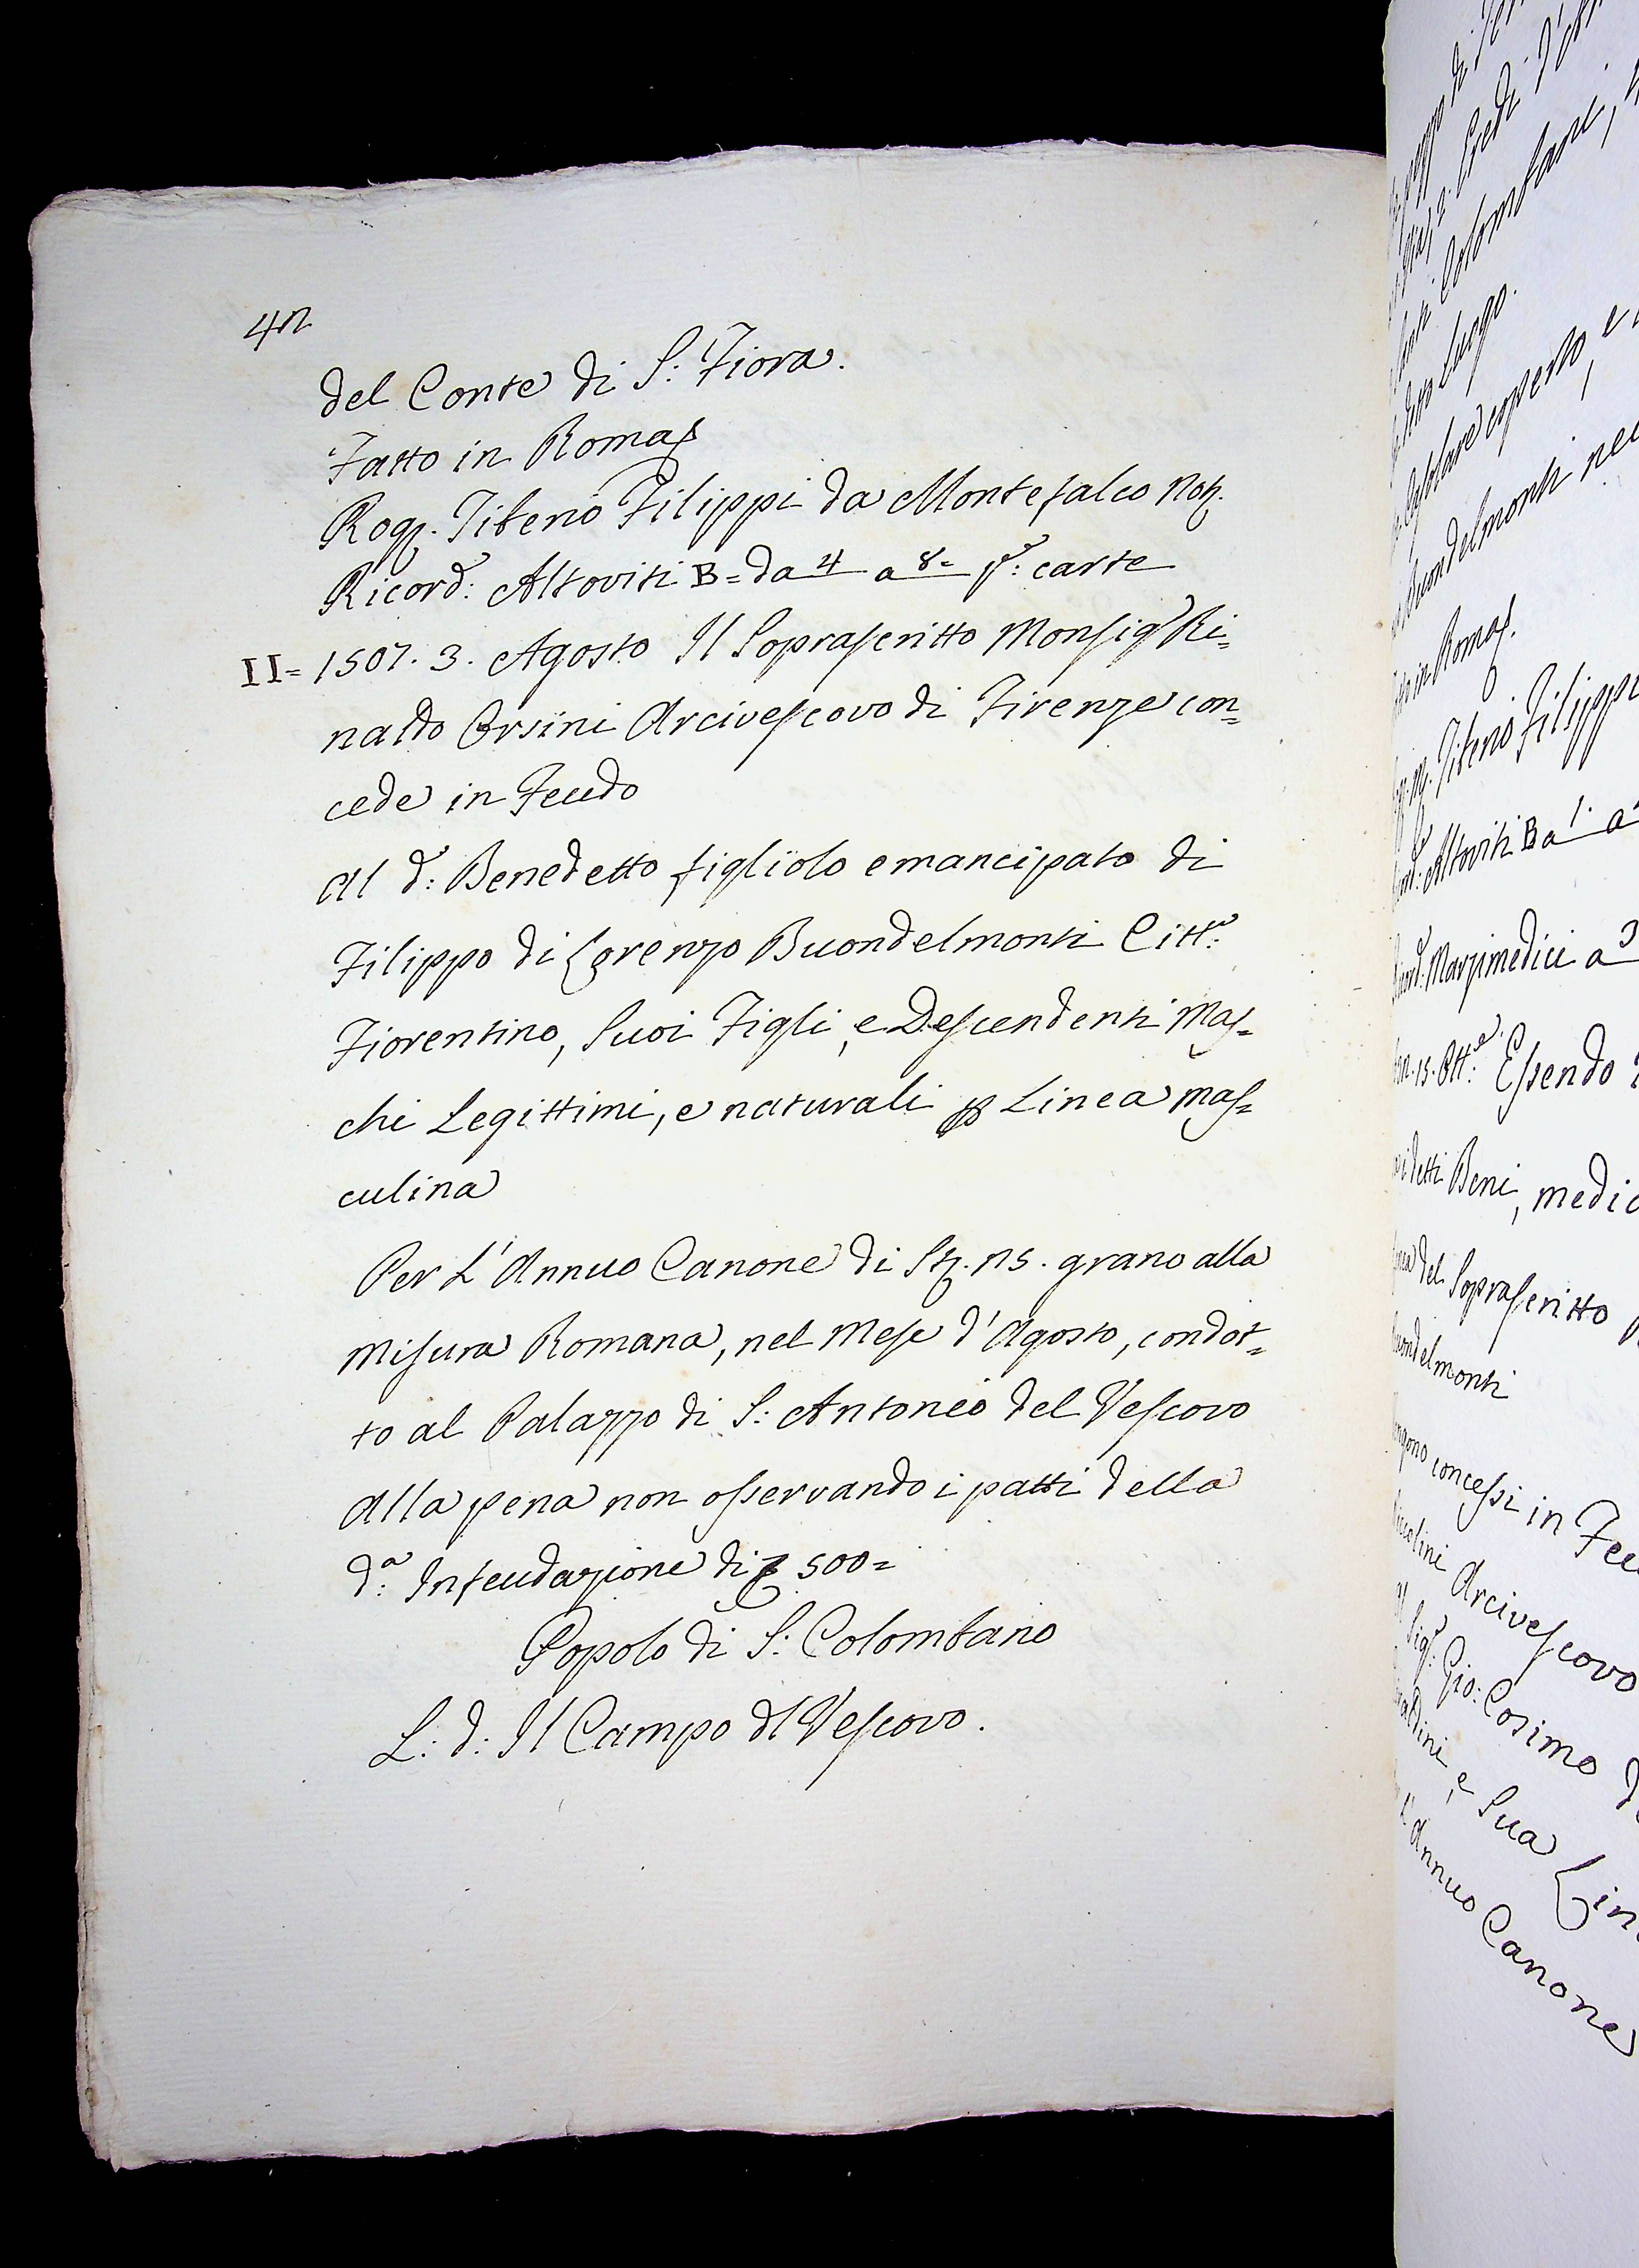 42
del Conte di S: Fiora.
Fatto in Roma
Rog. Tiberio Filippi da Montefalco Not.
Ricord: Altoviti B= da 4 a 8= p: carte
II= 1507. 3. Agosto Il Soprascritto Monsig.r Ri=
naldo Orsini Arcivescovo di Firenze con=
cede in Feudo
Al d: Benedetto figliolo emancipato di
Filippo di Lorenzo Buondelmonti Citt:
Fiorentino, Suoi Figli, e Descendenti Mas=
chi Legittimi, e naturali p Linea mas=
culina
Per L'Annuo Canone di St. 25. grano alla
Misura Romana, nel Mese d'Agosto, condot=
to al Palazzo di S: Antonio del Vescovo
Alla pena non osservando i patti della
d:a Infeudazione di 500=
Popolo di S: Colombano
L: d: Il Campo dl Vescovo.
Colombano,
luogo.
coperto, e
Buondelmonti nel
in Roma
Tiberio Filippi
Altoviti B a 1. a
Marzimedici a 3
15. Ott:e Essendo
detti Beni, medi
del Soprascritto
Buondelmonti
concessi in Feu
Arcivescovo
Sig.r Gio: Cosimo
e Sua Lin
Annuo Canone